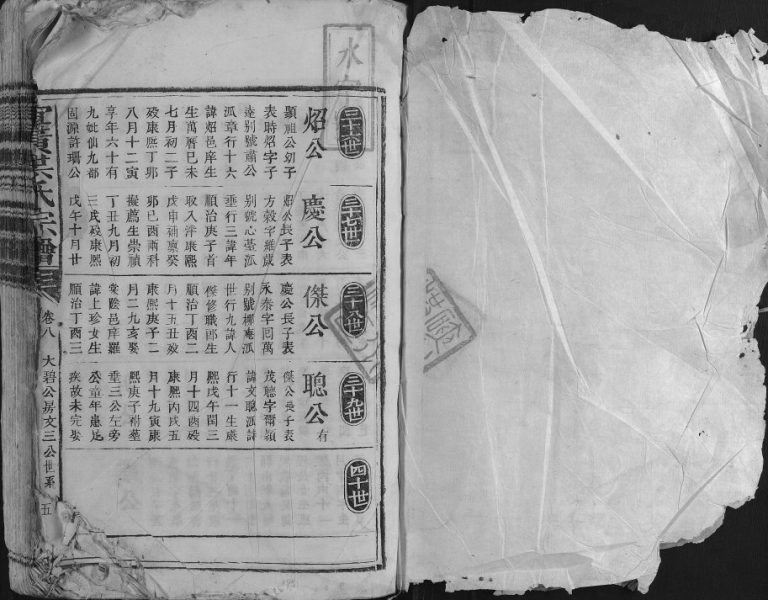 三十六世
炤公
顯祖公幼子
表時炤字子
遠别號肅公
派章行十六
諱炤邑庠生
生萬曆巳未
七月初二子
歿康熙丁卯
八月十二寅
享年六十有
九妣仙九都
許璠公
三十七世
慶公
炤公長子表
方毅字維
别號心基派
垂行三諱年
順治庚子首
取入泮康熙
戊申補廪癸
卯巳酉兩科
擬薦生崇禎
丁丑九月初
三戌歿康熙
戊午十月廿
三十八世
傑公
慶公長子表
永泰字同萬
别號柳菴派
世行九諱人
傑修職郎生
順治丁酉二
月十五丑歿
康熙庚子二
月二九亥娶
棠陰邑庠羅
諱上珍女生
順治丁酉三
三十九世
聰公
有
傑公長子表
茂聰字爾穎
諱文聰派詩
行十一生康
熙戊午閏三
月十四酉歿
康熙丙戌五
月十九寅康
熙庚子祔塟
垂三公左旁
公童年患
疾故未完娶
四十世
宜黃洪氏宗譜
卷八
大碧公房文三公世系
五